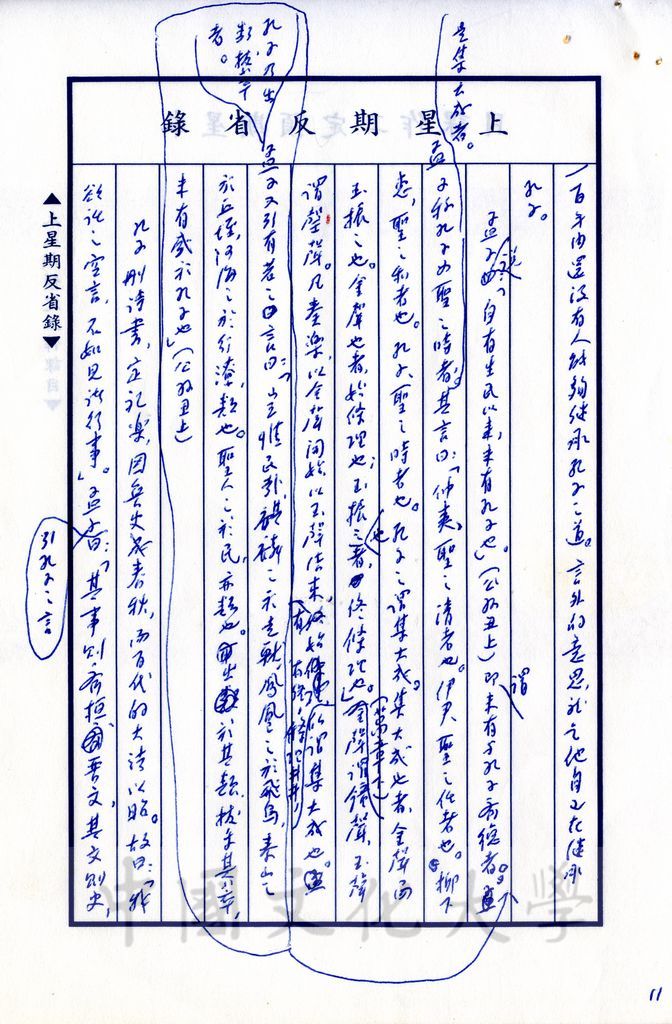 上星期反省錄
百年內還沒有人能夠继承孔子之道。言外的意思，就是他自己在继承
孔子。
孟子說「自有生民以來，未有孔子也」（公孙丑上）即謂未有与孔子齐德者。
孟子称孔子为聖之時者，其言曰：「伯夷，聖之清者也。伊尹，聖之任者也。柳下
惠，聖之和者也。孔子，聖之時者也。孔子之谓集大成。集大成也者，金聲而
玉振之也。金聲也者，始條理也；玉振之也者，终條理也」（萬章下）金聲謂鐘聲，玉聲
謂磬聲。凡奏樂，以金聲開始，以玉聲结束，有始有终，條理井井，所謂集大成也。
孟子又引有若之言曰：「豈惟民哉，麒麟之於走獸，鳳凰之於飛鸟，泰山之
於丘垤，河海之於行潦，類也。聖人之於民，亦類也。出於其類，拔乎其萃，
未有盛於孔子也」（公孙丑上）
孔子刪詩書，定礼樂，因魯史成春秋，而百代的大法以昭。故曰：「我
欲託之空言，不如見诸行事」。孟子曰：「其事则齐桓晋文，其文则史，
是集大成者。
孔子乃出類拔萃者。
引孔子之言
▲上星期反省錄▼
中國文化大學
11